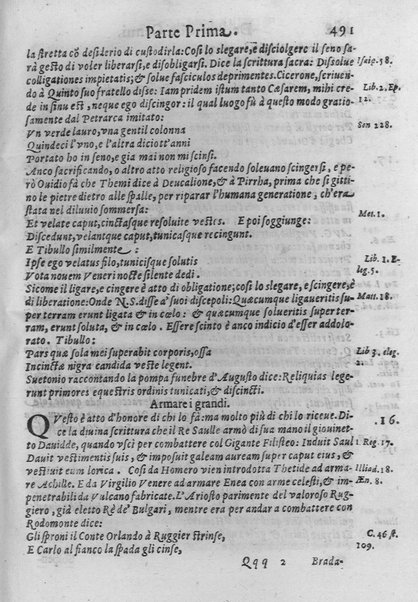 Parte Prima. 491
la stretta cõ desiderio di custodirla: Cosi lo slegare, e disciolgere il seno sa-
rà gesto di voler liberarsi, e disobligarsi. Dice la scrittura sacra: Dissolue Isaię. 58.
colligationes impietatis; & solue fasciculos deprimentes. Cicerone, scriuen-
do à Quinto suo fratello disse: Iampridem istum tanto Cæsarem, mihi cre- Lib. 2. Ep.
de in sinu est, neque ego discingor: il qual luogo fù à questo modo gratio- 12.
samente dal Petrarca imitato:
Vn verde lauro, vna gentil colonna Son 228.
Quindeci l'vno, e l'altra diciott'anni
Portato ho in seno, e gia mai non mi scinsi.
Anco sacrificando, o altro atto religioso facendo soleuano scingersi, e pe-
rò Ouidio fà che Themi dice à Deucalione, & à Pirrha, prima che si gitti-
no le pietre dietro alle spalle, per riparar l'humana generatione, ch'era
stata nel diluuio sommersa: Met. 1.
Et velate caput, cinctasque resoluite vestes. E poi soggiunge:
Discedunt, velantque caput, tunicasque recingunt.
E Tibullo similmente:
Ipse ego velatus filo, tunicisque solutis Lib. 1. E-
Vota nouem Veneri nocte silente dedi. leg. 5.
Sicome il ligare, e cingere è atto di obligatione; cosi lo slegare, e scingere, è
di liberatione: Onde N. S. disse a' suoi discepoli: Quæcumque ligaueritis su- Matt. 18.
per terram erunt ligata & in cœlo: & quæcumque solueritis super ter-
ram, erunt soluta, & in cœlo. Essere scinto è anco indicio d'esser addolo-
rato. Tibullo:
Pars quæ sola mei superabit corporis, ossa Lib 3. eleg.
Incinctæ nigra candida veste legent. 2.
Suetonio raccontando la pompa funebre d'Augusto dice: Reliquias lege-
runt primores equestris ordinis tunicati, & discincti.
Armare i grandi.
QVesto è atto d'honore di chi lo fà: ma molto più di chi lo riceue. Di- .16.
ce la diuina scrittura che il Re Saulle armò di sua mano il giouinet-
to Dauidde, quando vscì per combattere col Gigante Filisteo: Induit Saul I Reg. 17.
Dauit vestimentis suis, & imposuit galeam auream super caput eius, &
vestiuit eum lorica. Cosi da Homero vien introdutta Thetide ad arma- Iliad. 18.
re Achille. E da Virgilio Venere ad armare Enea con arme celesti, & im- Æn. 8.
penetrabili da Vulcano fabricate. L'Ariosto parimente del valoroso Rug-
giero, già eletto Rè de' Bulgari, mentre era per andar a combattere con
Rodomonte dice:
Gli sproni il Conte Orlando à Ruggier strinse, C. 46. st.
E Carlo al fianco la spada gli cinse, 109.
Qqq 2 Brada-